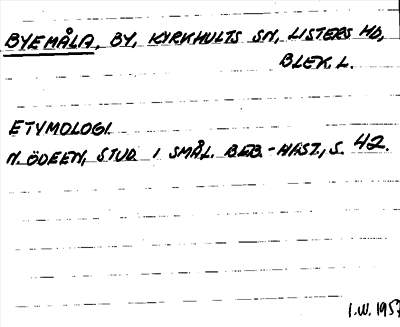 BYEMÅLA, BY, KYRKHULTS SN, LISTERS HD,
BLEK. L.
ETYMOLOGI
N. ÖDEEN, STUD. I SMÅL. BEB.-HIST., S. 42.
I.W. 1957